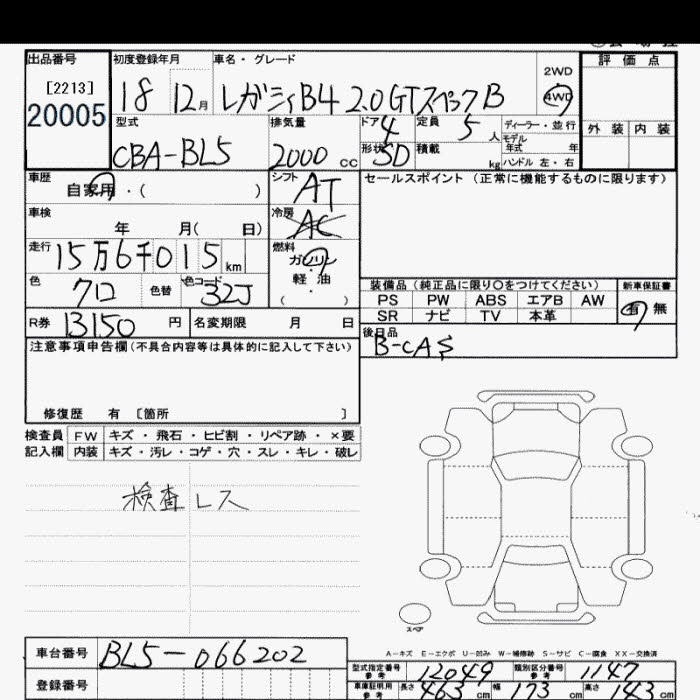 出品番号 初度登録年月 車名・グレード 評価点
[2213]
20005
18 12月 レガシィB4 2.0GTスペックB 2WD 4WD
外装 内装
型式 排気量 ドア 定員 ディーラー・並行
CBA-BL5 2000cc 4 5人 モデル年式 年
形状 SD 積載 kg ハンドル 左・右
車歴 シフト セールスポイント (正常に機能するものに限ります)
自家用・( ) AT
車検 冷房
年 月( 日) AC
走行 燃料
15万6千015km ガソリン
軽油
( )
色 クロ 色替 色コード 32J
装備品(純正品に限り〇をつけてください) 新車保証書
PS PW ABS エアB AW 有 無
SR ナビ TV 本革
R券 13150円 名変期限 月 日
後日品
B-CAS
注意事項申告欄(不具合内容等は具体的に記入して下さい)
修復歴 有 [箇所 ]
検査員 FW キズ・飛石・ヒビ割・リペア跡・×要
記入欄 内装 キズ・汚レ・コゲ・穴・スレ・キレ・破レ
検査レス
スペア
A-キズ E-エクボ U-凹み W-補修跡 S-サビ C-腐食 XX-交換済
車台番号 BL5-066202
型式指定番号 参考 12049 類別区分番号 参考 1147
登録番号
車庫証明用 参考 長さ 463cm 幅 173cm 高さ 43cm